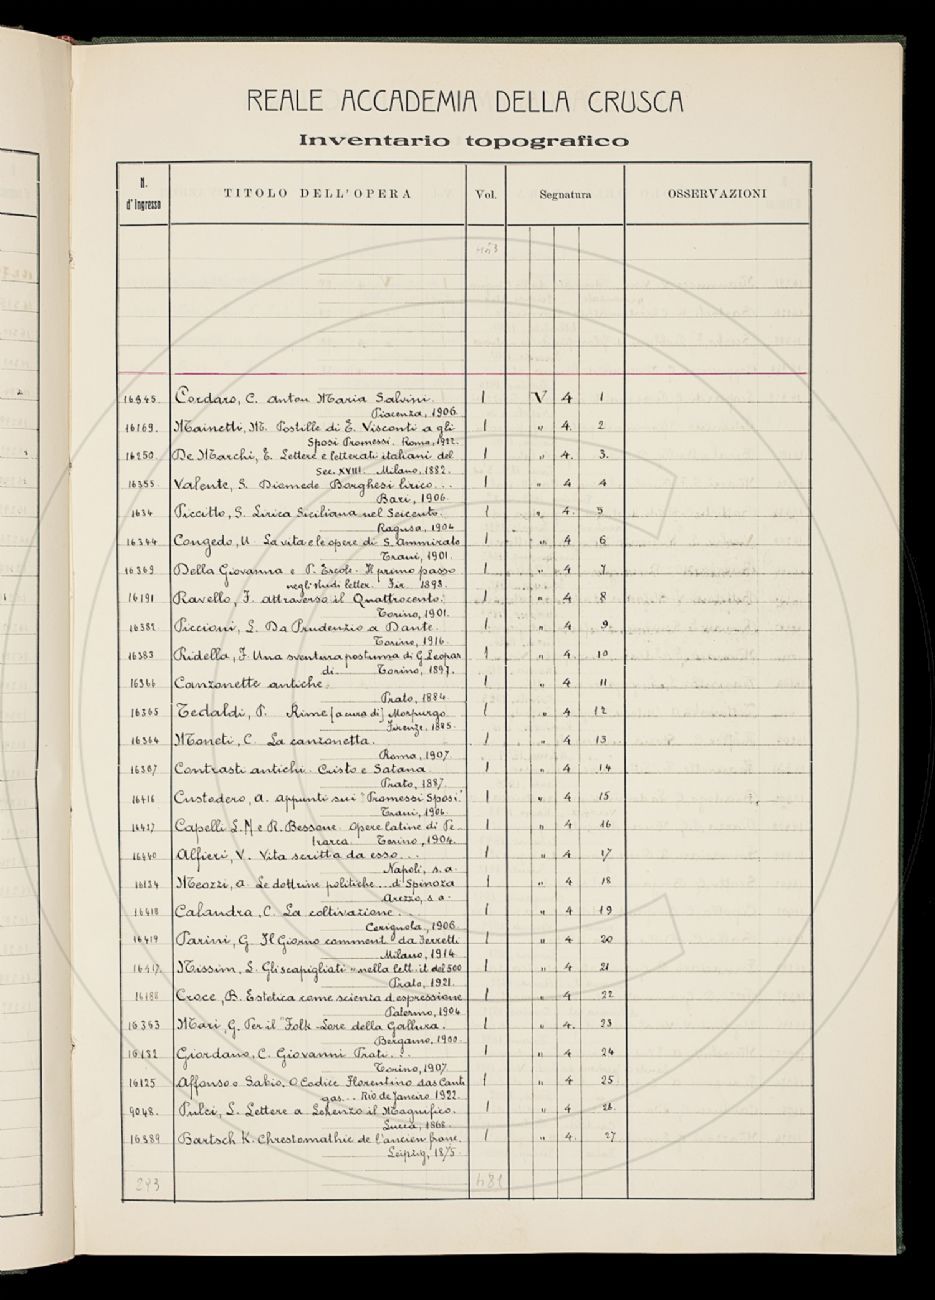 REALE ACCADEMIA DELLA CRUSCA
Inventario topografico
N. d'Ingresso TITOLO DELL'OPERA Vol. Segnatura OSSERVAZIONI
16945 Cordaro, C. Anton Maria Salvini. 1 V 4 1
Piacenza, 1906.
16169. Mainetti, M. Postille di E. Visconti a gli 1 " 4. 2
Sposi Promessi. Roma, 1922.
16250 De Marchi, E. Lettere e letterati italiani del 1 " 4. 3.
Sec. XVIII. Milano, 1882.
16355 Valente, S. Diomede Borghesi lirico... 1 " 4 4
Bari, 1906.
1634 Piccitto, S. Lirica Siciliana nel Seicento. 1 " 4. 5
Ragusa, 1904
16344 Congedo, U. La vita e le opere di S. Ammirato 1 " 4 6
Trani, 1901.
16369 Della Giovanna e P. Ercole. Il primo passo 1 " 4 7
negli studi letter. Fir. 1893.
16191 Ravello, F. Attraverso il Quattrocento. 1 " 4 8
Torino, 1901.
16382 Piccioni, L. Da Prudenzio a Dante. 1 " 4 9
Torino, 1916.
16383 Ridella, F. Una sventura postuma di G. Leopar 1 " 4. 10
di. Torino, 1897.
16366 Canzonette antiche. 1 " 4 11
Prato, 1884.
16365 Tedaldi, P. Rime [a cura di] Morpurgo 1 " 4 12
Firenze, 1885.
16364 Moneti, C. La canzonetta. 1 " 4 13
Roma, 1907.
16367 Contrasti antichi. Cristo e Satana. 1 " 4 14
Prato, 1887.
16416 Custodero, A. Appunti sui "Promessi Sposi". 1 " 4 15
Trani, 1906.
16417 Capelli L. M. e R. Bessone. Opere latine di Pe- 1 " 4 16
trarca. Torino, 1904.
16440 Alfieri, V. Vita scritta da esso... 1 " 4 17
Napoli, s. a.
16134 Meozzi, A. Le dottrine politiche... d'Spinoza 1 " 4 18
Arezzo, s. a.
16418 Calandra, C. La coltivazione... 1 " 4 19
Cerignola, 1906.
16419 Parini, G. Il Giorno comment. da Ferretti 1 " 4 20
Milano, 1914
16417. Nissim, L. Gli scapigliati " nella lett. it. del 500 1 " 4 21
Prato, 1921.
16188 Croce, B. Estetica come scienza d. espressione 1 " 4 22
Palermo, 1904
16363 Mari, G. Per il "Folk-Lore della Gallura. 1 " 4. 23
Bergamo, 1900.
16132 Giordano, C. Giovanni Prati... 1 " 4 24
Torino, 1907
16125 Affonso o Sabio. O Codice Florentino das Canti 1 " 4 25
gas... Rio de Janeiro 1922.
9048. Pulci, L. Lettere a Lorenzo il Magnifico. 1 " 4 26.
Lucca, 1868.
16389 Bartsch K. Chrestomathie de l'ancien franc. 1 " 4. 27
Leipzig, 1875.
293 481